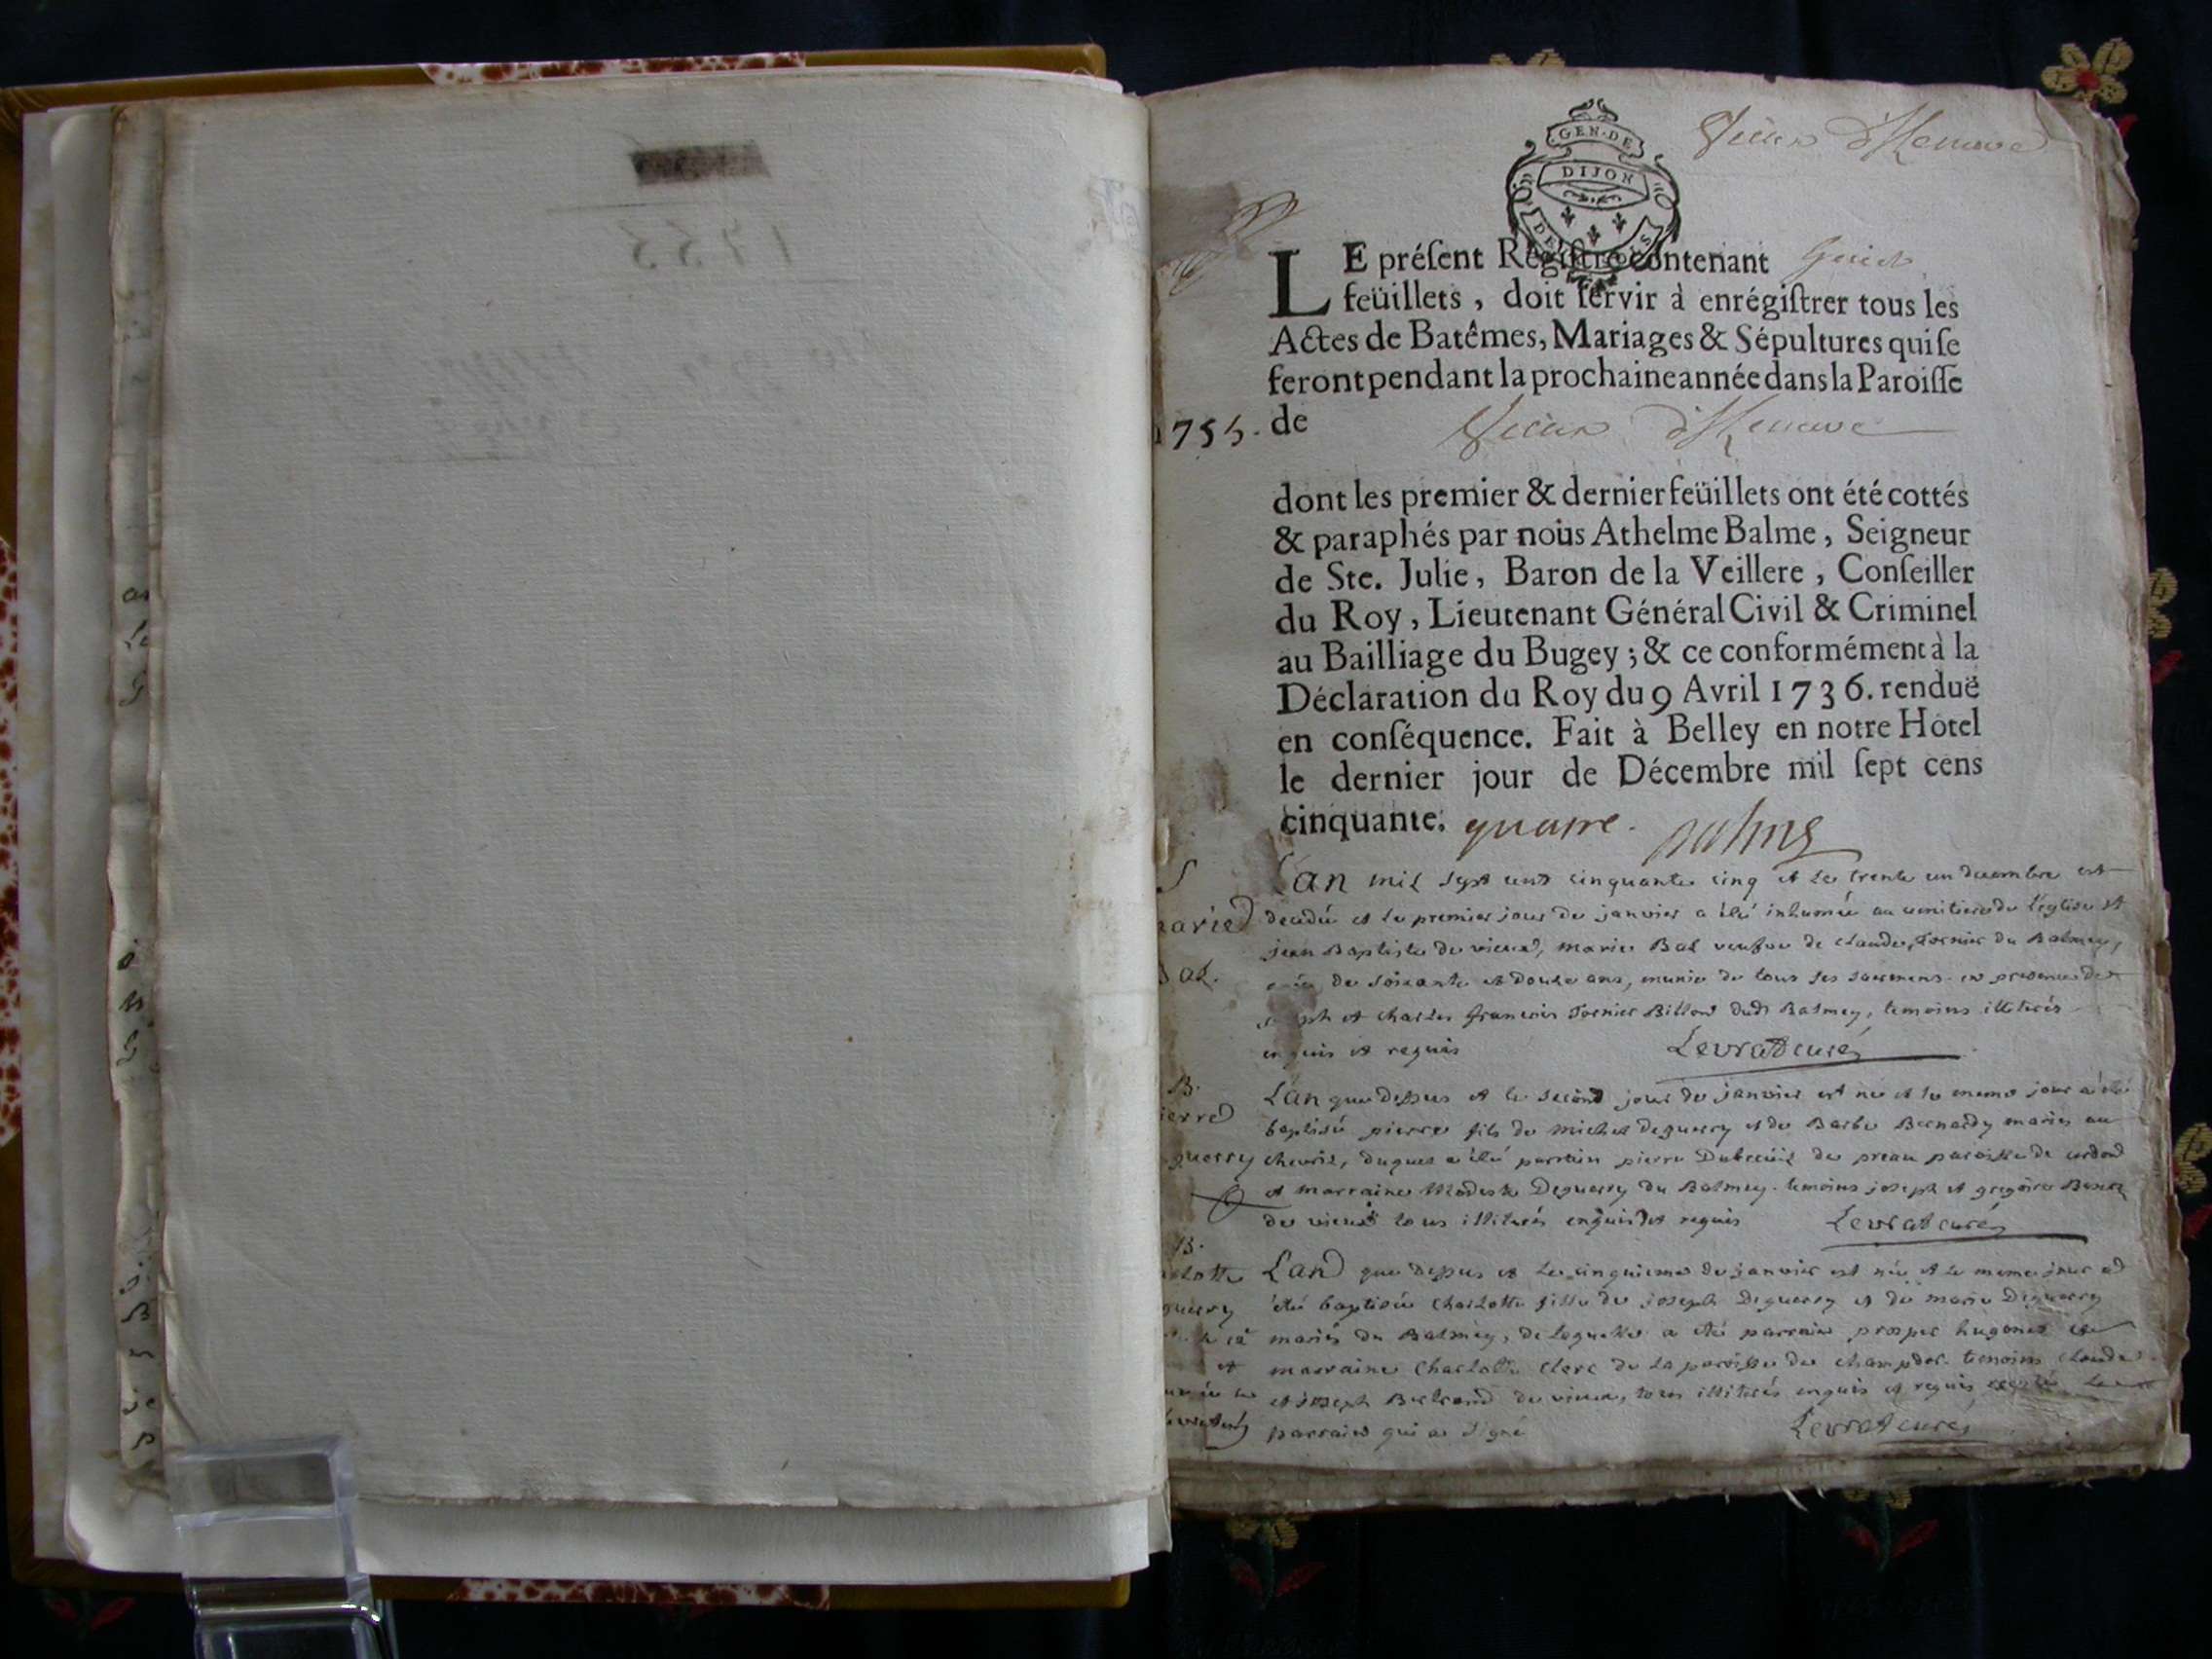 GEN. DE
DIJON
Vieux d'Izenave
LE préſent Régiſtre contenant huit
feüillets, doit ſervir à enrégiſtrer tous les
Actes de Batêmes, Mariages & Sépultures qui ſe
feront pendant la prochaine année dans la Paroiſſe
1755. de Vieux d'Izenave
dont les premier & dernier feüillets ont été cottés
& paraphés par noùs Athelme Balme, Seigneur
de Ste. Julie, Baron de la Veillere, Conſeiller
du Roy, Lieutenant Général Civil & Criminel
au Bailliage du Bugey; & ce conformément à la
Déclaration du Roy du 9 Avril 1736. renduë
en conſéquence. Fait à Belley en notre Hôtel
le dernier jour de Décembre mil ſept cens
cinquante. quatre. Balme
S
L'an mil sept cent cinquante cinq et le trente un decembre est
marie decedée et le premier jour de janvier a été inhumée au cemitiere de l'eglise St
jean Baptiste de vieux, marie Bal veufve de claude, Tornier du Balmey,
Bal. de soixante et douze ans, munie de tous ses sacremens en presence de
joseph et charles françois Tornier Billon dud Balmey, temoins illiterés
enquis et requis Levrat curé
B.
L'an que dessus et le second jour de janvier est né et le meme jour a été
pierre baptisé pierre fils de michel deguerry et de Barbe Bernardy mariés au
guerry chevril, duquel a été parrain pierre Dubreüil de preau paroisse de cerdon
et marraine Modeste Deguerry du Balmey. temoins joseph et gregoire
de vieux tous illiterés enquis et requis Levrat curé
B.
lotte L'an que dessus et le cinquieme de janvier est née et le meme jour a
guerry été baptisée charlotte fille de joseph Deguerry et de marie Deguerry
mariés du Balmey, de laquelle a été parrain prosper hugonet et
et marraine charlotte clerc de la paroisse de champdor. temoins claude
et joseph Bertrand de vieux, tous illiterés enquis et requis excepté le
parrain qui a signé Levrat curé